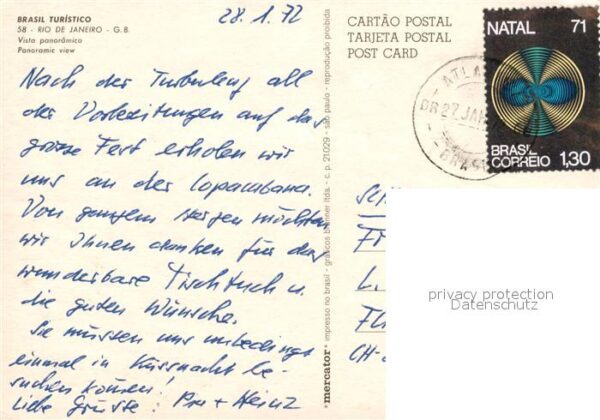 BRASIL TURÍSTICO
58 - RIO DE JANEIRO - G.B.
Vista panorâmica
Panoramic view
28.1.72
Nach der Turbulenz all
der Vorbereitungen auf das
grosse Fest erholen wir
uns an der Copacabana.
Von ganzem Herzen möchten
wir Ihnen danken für das
wunderbare Tischtuch u.
die guten Wünsche.
Sie müssen uns unbedingt
einmal in Küssnacht be-
suchen kommen!
Liebe Grüsse: + Heinz
mercator* impresso no brasil - gráficos brunner ltda. - c. p. 21029 - são paulo - reprodução proibida
CARTÃO POSTAL
TARJETA POSTAL
POST CARD
NATAL 71
BRASIL
CORREIO 1,30
27 JAN
L.
CH-
privacy protection
Datenschutz